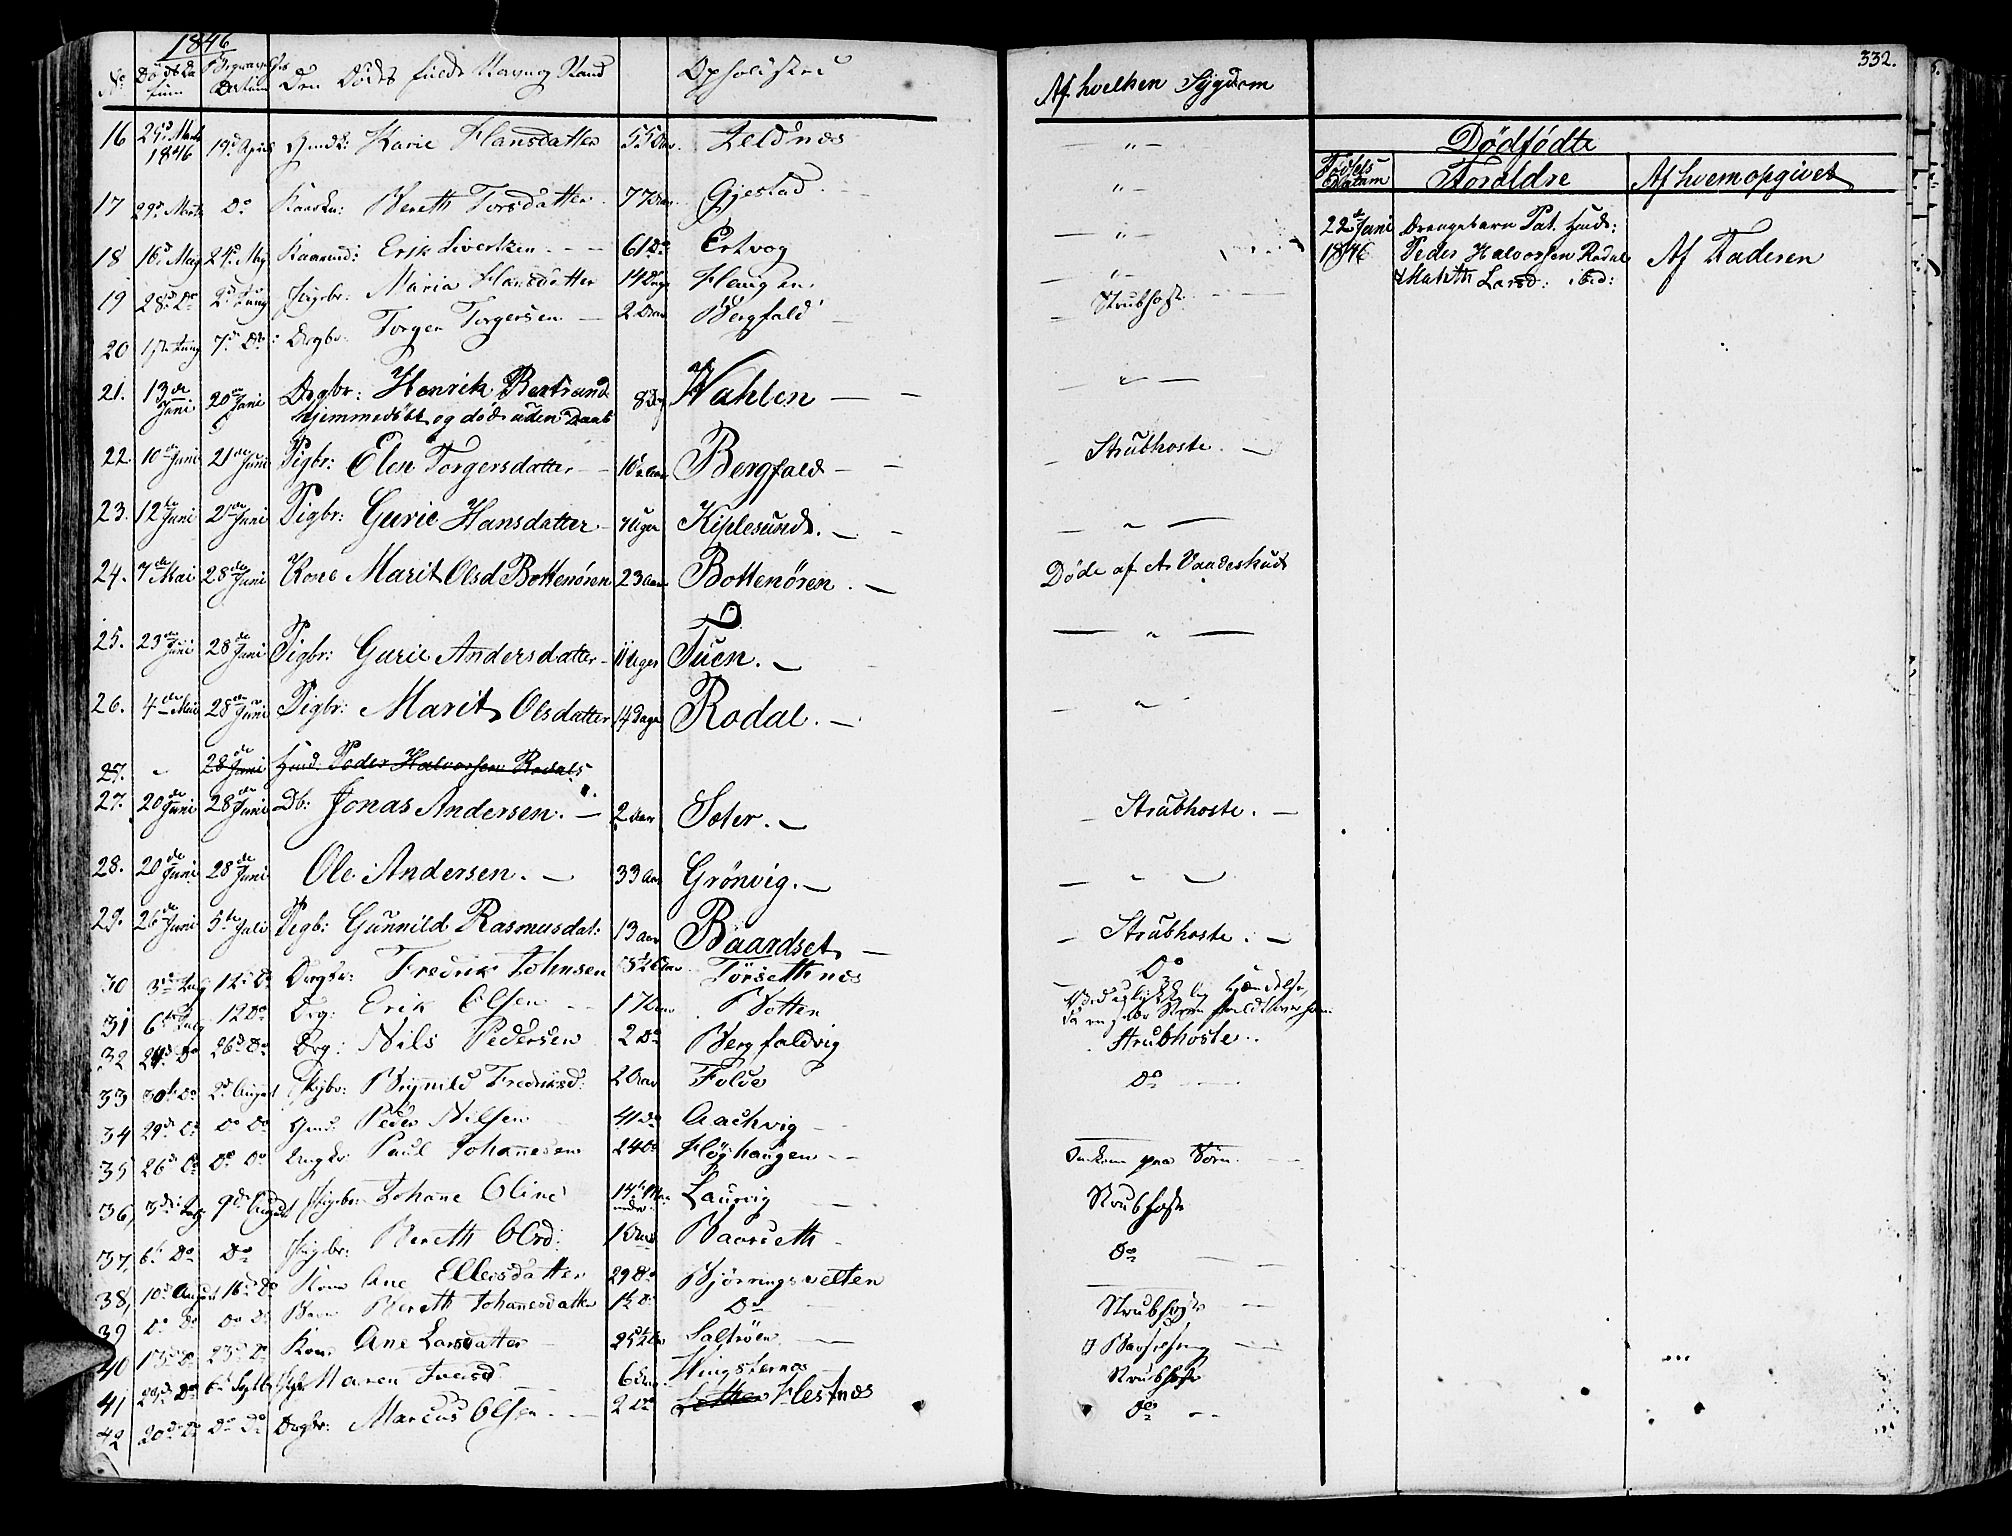 1846
No Døds Da Begravelses Den Dødes fulde Navn og Stand Opholdssted Af hvelken Sygdom 332.
tum Datum
16 25d Marts 1846 19d April Gmdk: Karie Hansdatter 55 Aar. Leldnæs — " —
17 29d Marts Do Kaarkn: Bereth Torsdatter 77 Aar. Gjestad — " —
18 16d May 24d May Kaarmd: Erik Sivertsen 61 Do Ertvog — " —
19 28d Do 2d Juny Pigebr: Maria Hansdatter 14 Dage Haugen "
20 1ste Juny 7d Do Drgbr: Torger Torgersen 2 Aar Bergfald Strubhoste
21. 13de Juni 20de Juni Drgbr: Henrik Bertrand 8 Dg Wahlen — " —
hjemmedøbt og død uden Daab
22. 10de Juni 21de Juni Pigbr: Elen Torgersdatter 10 Aar Bergfald Strubhoste.
23. 12te Juni 21de Juni Pigbr: Gurie Hansdatter 7 Uger Kiplesund. — " —
24. 7de Mai 28de Juni Kone Marit Olsd Bottenören 23 Aar Bottenören. Døde af et Vaadeskud
25. 23de Juni 28de Juni Pigbr: Gurie Andersdatter 11 Uger Tuen. — " —
26. 4de Mai 28de Juni Pigbr: Marit Olsdatter 14 Dage Rodal. "
27. 28de Juni Hmd. Peder Halvorsen Rodal
27. 20de Juni 28de Juni Db: Jonas Andersen. 2 Aar Soter. Strubhoste.
28. 20de Juni 28de Juni Ole Andersen. 33 Aar Grönvig.
29. 26de Juni 5te Juli Pigb: Gunnild Rasmusdat: 13 Aar Baardset Strubhoste.
30 3d July 12d Do Drgbr: Fredrik Johnsen Aar Torsethnæs Do
31 6te July 12 Do Drg: Erik Olsen 17 Aar Botten Ved ulykkelig Hændelse,
32 24d Do 26d Do Drg: Nils Pedersen 2 Do Bergfaldvig Strubhoste.
33 30te Do 2d August Pigbr: Brynild Fredriksd: 2 Aar Folde Do
34 29d Do Do Do Gmd: Peder Nilsen 41 Do Aackvig
35 26d Do Do Do Ungkr Paul Johannesen 24 Do Høghaugen Omkom paa Søen.
36, 3die July 9de August Pigebr: Johane Oline 14 Laurvig Strubhoste
37, 6te Do Do Pigbr: Bereth Olsd: 1 Aar Baarseth Do
38, 10de August 16d Do Kone Ane Ellersdatter 29 Do Bjørringsvelten
39 Do Do Do Do Barn Bereth Johannesdatter 1½ Do Do Strubhoste
40 13d Do 23d Do Kone Ane Larsdatter 25 Aar Saltrøen Barselseng
41 29d Do 6te Septbr Pigbr Maren Iversd 6 Aar Kingsternæs Strubhoste
42 20d Do Do Do Drgbr: Marcus Olsen 2 Do Hestnæs Do
Dødfødte
Fødsels Datum Foraldre Af hvem opgivet
22de Juni Drengebarn Pat. Hmd:
1846 Peder Halvorsen Rodal Af Faderen
& Mahrth Larsd: ibid: